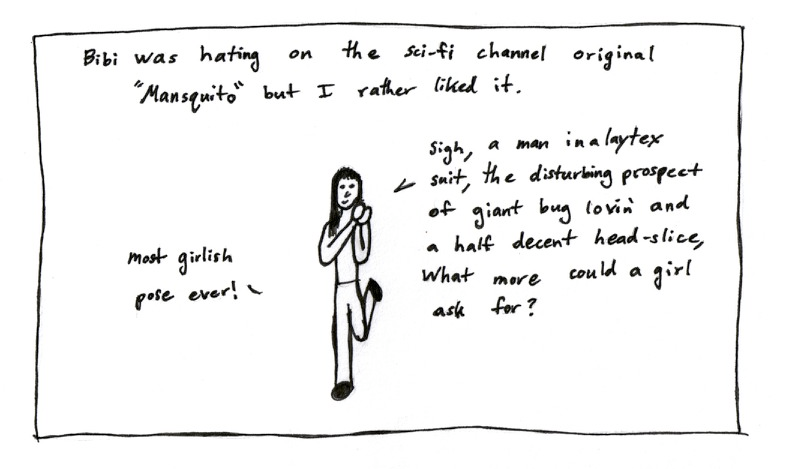 Bibi was hating on the sci-fi channel original
"Mansquito" but I rather liked it.
Sigh, a man in a laytex
suit, the disturbing prospect
of giant bug lovin' and
a half decent head-slice,
What more could a girl
ask for?
most girlish
pose ever!